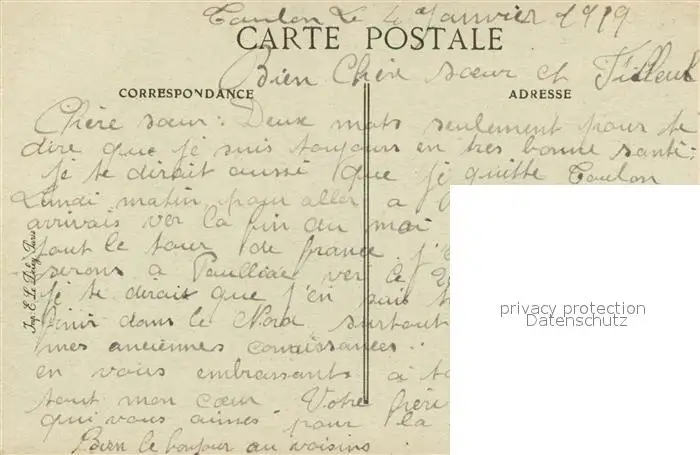 Toulon Le 4 Janvier 1919
CARTE POSTALE
Bien Chère sœur et Filleul
CORRESPONDANCE
ADRESSE
Chère sœur : Deux mots seulement pour te
dire que je suis toujours en très bonne santé.
Je te dirait aussi que je quitte Toulon
Lundi matin pour aller a
arrivais ver la fin du moi
tout le tour de france. j'
serons a Paulliac ver le 2
Je te dirait que j'en suis
finir dans le Nord surtout
mes anciennes connaissances.
en vous embrassant à
tout mon cœur Votre frère
qui vous aimes pour la
Bien le bonjour au voisins
Imp. E. Le Deley, Paris
privacy protection
Datenschutz